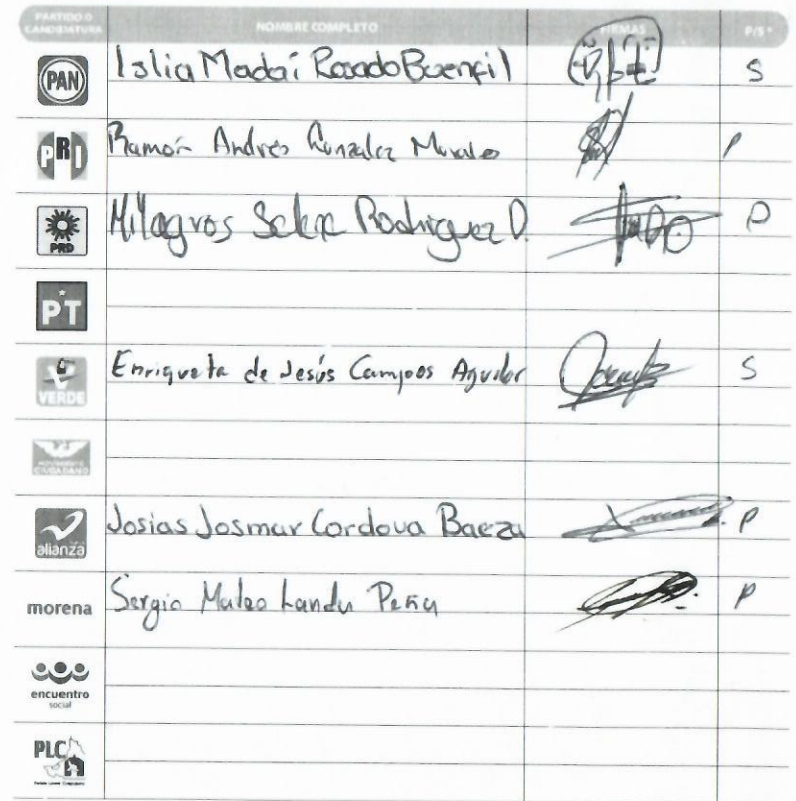 PARTIDO O CANDIDATURA NOMBRE COMPLETO FIRMAS P/S*
PAN Islia Madaí Rosado Buenfil S
PRI Ramón Andrés Gonzalez Morales P
PRD Milagros Rodriguez D. P
PT
VERDE Enriqueta de Jesús Campos Aguilar S
MOVIMIENTO CIUDADANO
alianza Josias Josmar Cordova Baeza P
morena Sergio Mateo Landa Peña P
encuentro
social
PLC